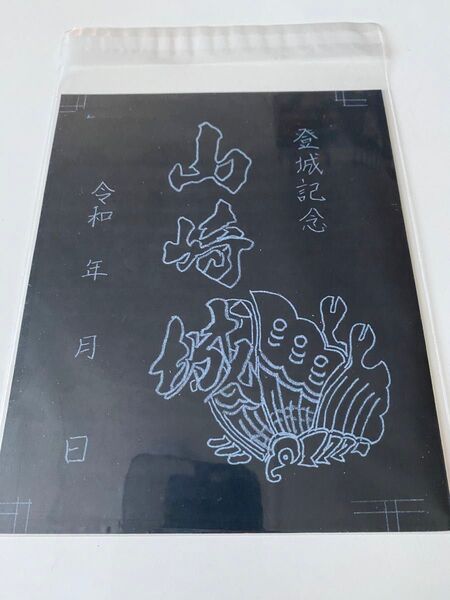 登城記念
山崎城
令和　年　月　日